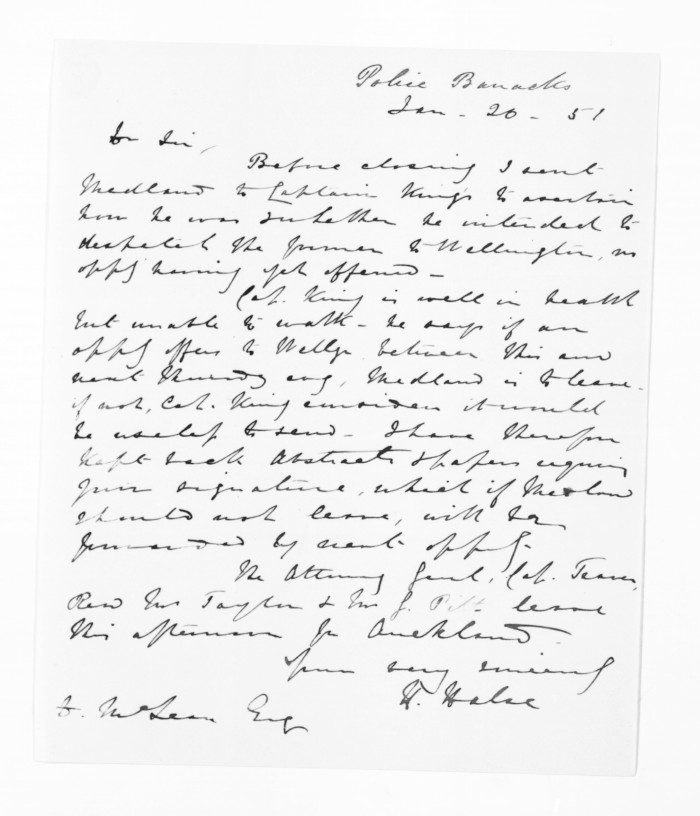 Police Barracks
Jan - 20 - 51
Dr Sir,
Before closing I sent
Medland to Captain King's to ascertain
how he was & whether he intended to
despatch the former to Wellington, no
oppy having yet offered -
Cap. King is well in health
but unable to walk - he says if an
oppy offers to Wellgn between this and
next Thursday evg, Medland is to leave -
if not, Cap. King considers it would
be useless to send - I have therefore
kept back Abstracts & papers requiring
your signature, which if Medland
should not leave, will be
forwarded by next oppy -
The Attorney Genl, Cap.
Revd Mr Taylor & Mr J. Pitt leave
this afternoon for Auckland.
Your very sincerely
H. Halse
D. McLean Esq